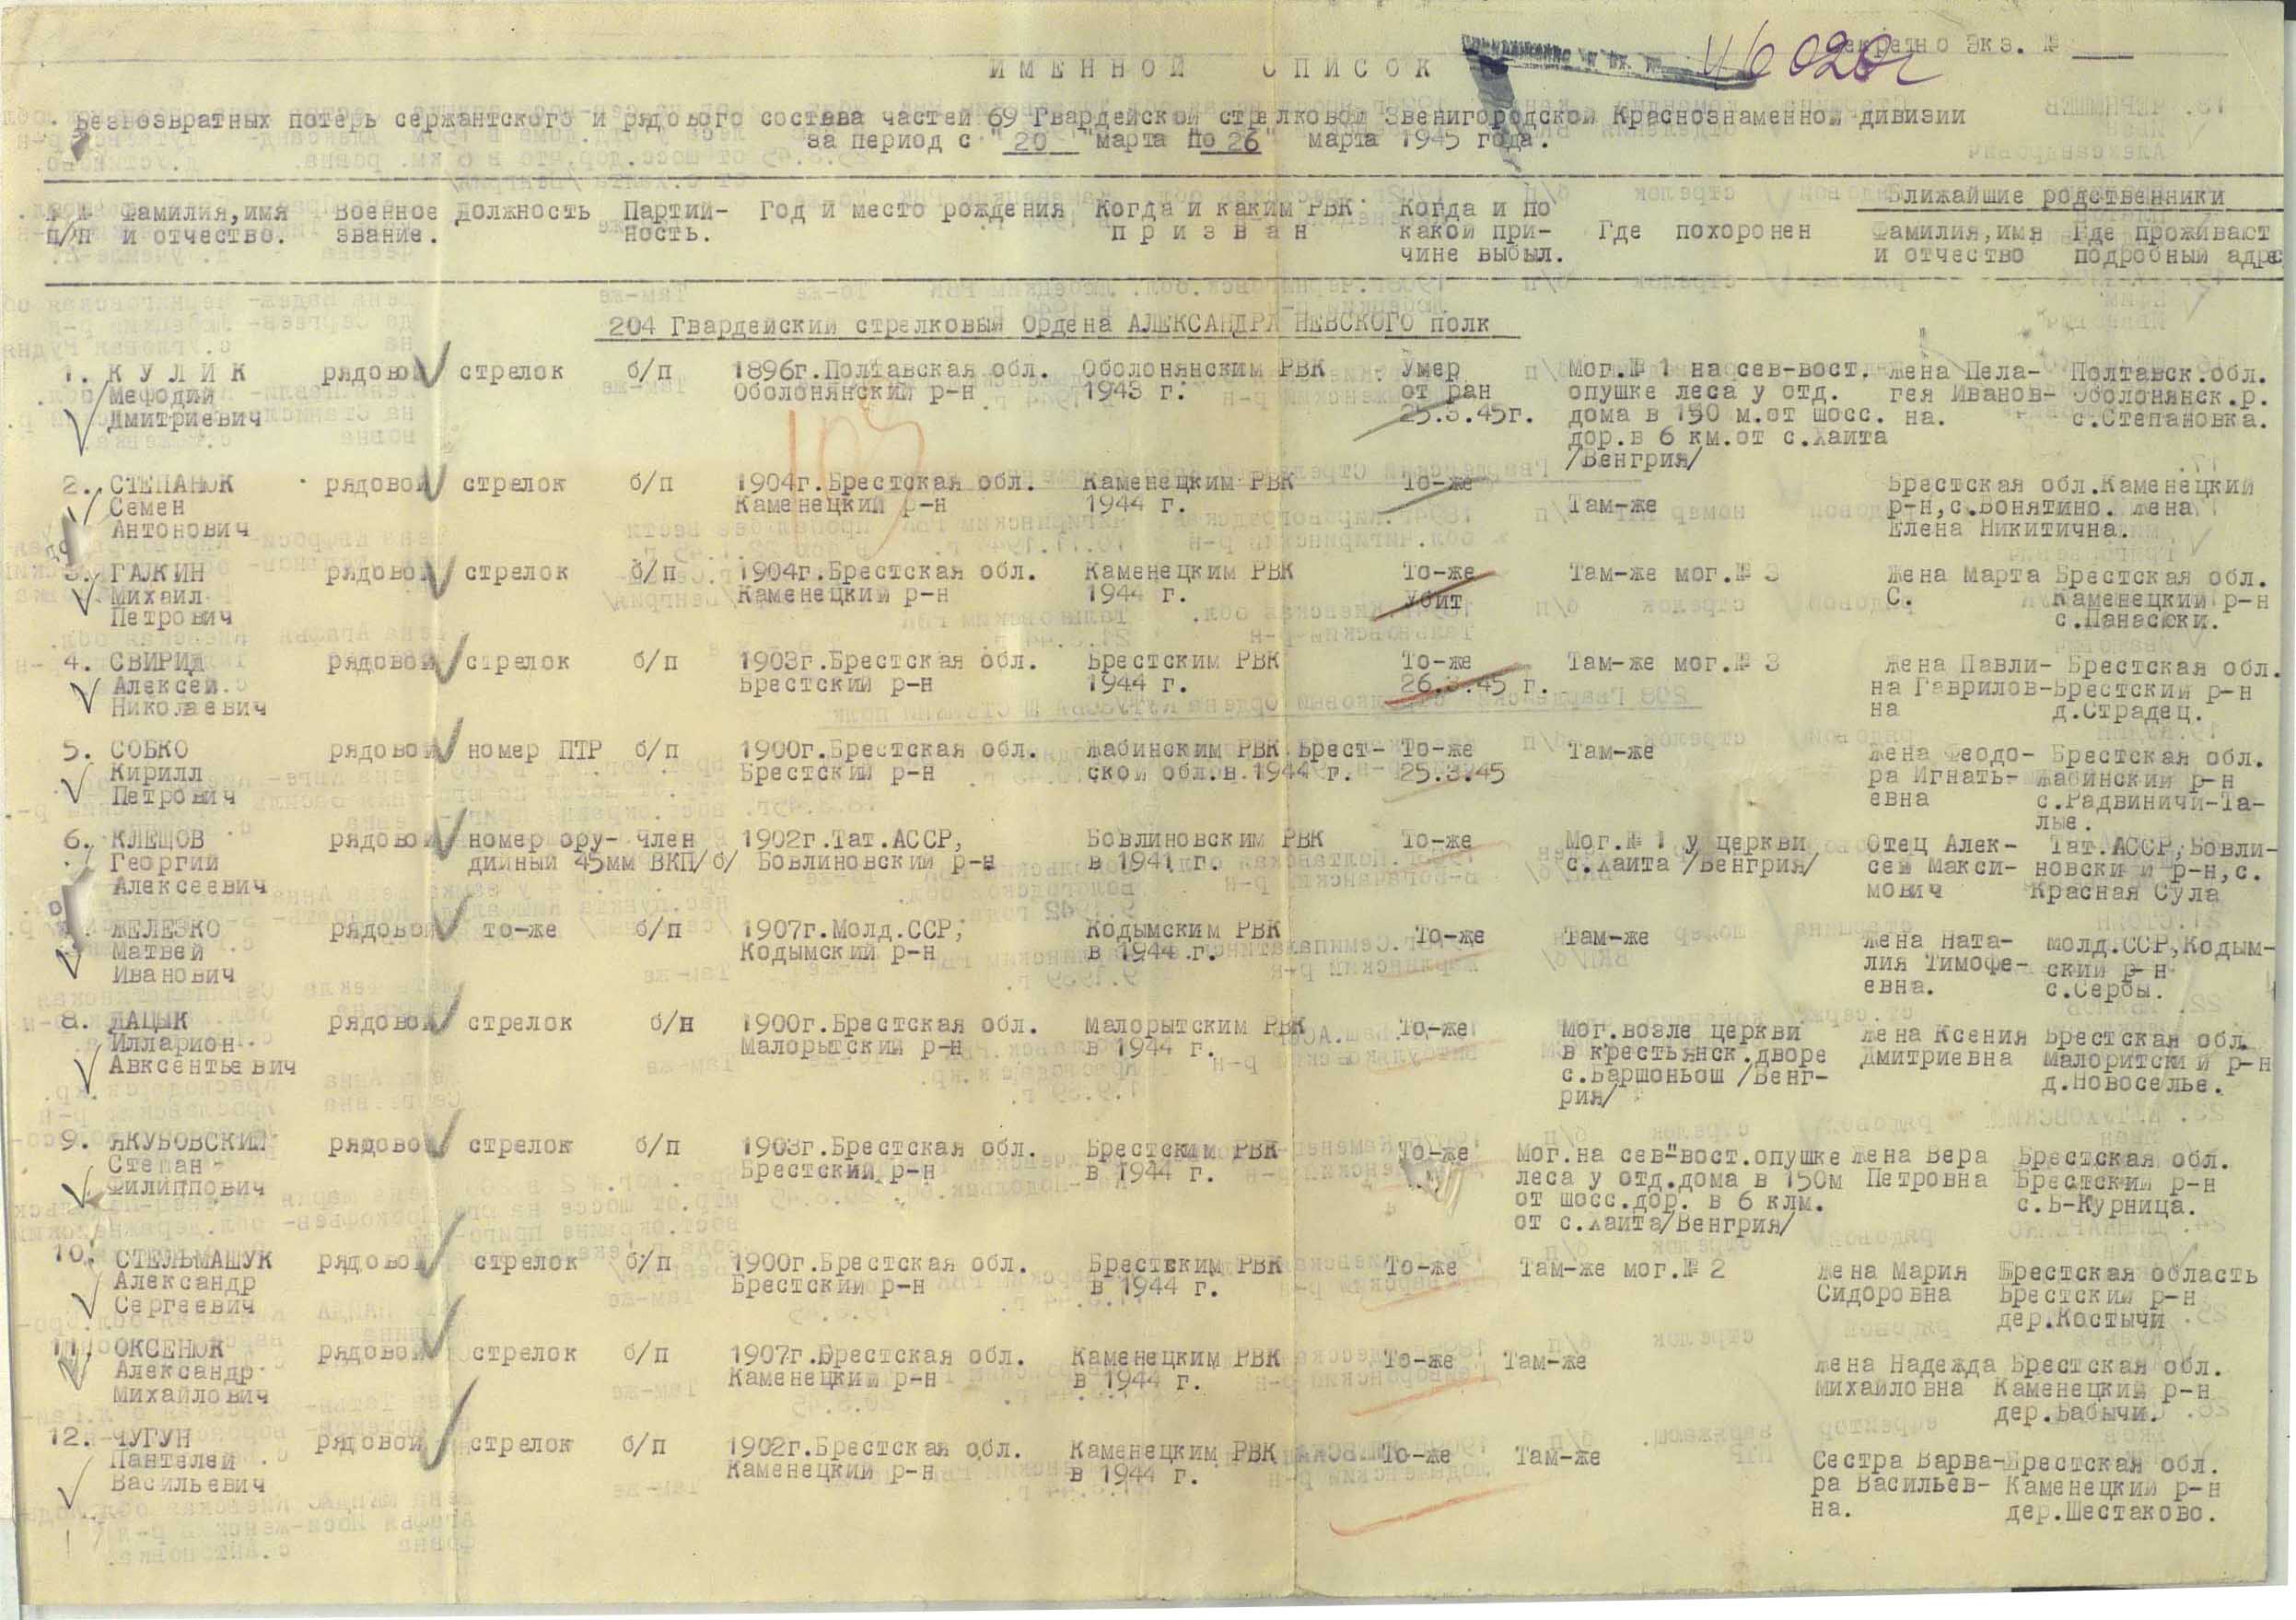 Секретно Экз. №
46020с
ИМЕННОЙ СПИСОК
Безвозвратных потерь сержантского и рядового состава частей 69 Гвардейской стрелковой Звенигородской Краснознаменной дивизии
за период с "20" марта по "26" марта 1945 года.
№ № п/п
Фамилия,имя и отчество.
Военное звание.
Должность
Партий-ность.
Год и место рождения
Когда и каким РВК призван
Когда и по какой при-чине выбыл.
Где похоронен
Ближайшие родственники
Фамилия,имя и отчество
Где проживают подробный адрес
204 Гвардейский стрелковый Ордена АЛЕКСАНДРА НЕВСКОГО полк
1. КУЛИК рядовой стрелок б/п 1896г.Полтавская обл. Оболонянским РВК Умер Мог.№ 1 на сев-вост. Жена Пела- Полтавск.обл.
Мефодий Оболонянский р-н 1943 г. от ран опушке леса у отд. гея Иванов- Оболонянск.р.
Дмитриевич 25.3.45г. дома в 150 м.от шосс. на. с.Степановка.
дор.в 6 км.от с.Хаита
/Венгрия/
2. СТЕПАНЮК рядовой стрелок б/п 1904г.Брестская обл. Каменецким РВК То-же Брестская обл.Каменецкий
Семен Каменецкий р-н 1944 г. Там-же р-н,с.Вонятино. Жена
Антонович Елена Никитична.
3. ГАЛКИН рядовой стрелок б/п 1904г.Брестская обл. Каменецким РВК То-же Там-же мог.№ 3 Жена Марта Брестская обл.
Михаил Каменецкий р-н 1944 г. убит С. Каменецкий р-н
Петрович с.Панасюки.
4. СВИРИД рядовой стрелок б/п 1903г.Брестская обл. Брестским РВК То-же Там-же мог.№ 3 Жена Павли- Брестская обл.
Алексей Брестский р-н 1944 г. 26.3.45 г. на Гаврилов-Брестский р-н
Николаевич на д.Страдец.
5. СОБКО рядовой номер ПТР б/п 1900г.Брестская обл. Жабинским РВК Брест- То-же Там-же Жена Феодо- Брестская обл.
Кирилл Брестский р-н ской обл.в 1944 г. 25.3.45 ра Игнать- Жабинский р-н
Петрович евна с.Радвиничи-Та-
лые.
6. КЛЕЩОВ рядовой номер ору- член 1902г.Тат.АССР, Бовлиновским РВК То-же Мог.№ 1 у церкви Отец Алек- Тат.АССР,Бовли-
Георгий дийный 45мм ВКП/б/ Бовлиновский р-н в 1941 г. с.Хаита /Венгрия/ сей Макси- новский р-н,с.
Алексеевич мович Красная Сула
ЖЕЛЕЗКО рядовой то-же б/п 1907г.Молд.ССР, Кодымским РВК То-же Там-же Жена Ната- Молд.ССР,Кодым-
Матвей Кодымский р-н в 1944 г. лия Тимофе- ский р-н
Иванович евна. с.Сербы.
8. ДАЦЫК рядовой стрелок б/н 1900г.Брестская обл. Малорытским РВК То-же Мог.возле церкви Жена Ксения Брестская обл.
Илларион Малорытский р-н в 1944 г. в крестьянск.дворе Дмитриевна Малоритский р-н
Авксентьевич с.Варшоньош /Венг- д.Новоселье.
рия/
9. ЯКУБОВСКИЙ рядовой стрелок б/п 1903г.Брестская обл. Брестским РВК То-же Мог.на сев-вост.опушке Жена Вера Брестская обл.
Степан Брестский р-н в 1944 г. леса у отд.дома в 150м Петровна Брестский р-н
Филиппович от шосс.дор. в 6 клм. с.Б-Курница.
от с.Хаита/Венгрия/
10. СТЕЛЬМАШУК рядовой стрелок б/п 1900г.Брестская обл. Брестским РВК То-же Там-же мог.№ 2 Жена Мария Брестская область
Александр Брестский р-н в 1944 г. Сидоровна Брестский р-н
Сергеевич дер.Костычи
11. ОКСЕНЮК рядовой стрелок б/п 1907г.Брестская обл. Каменецким РВК То-же Там-же Жена Надежда Брестская обл.
Александр Каменецкий р-н в 1944 г. Михайловна Каменецкий р-н
Михайлович дер.Бабычи.
12. ЧУГУН рядовой стрелок б/п 1902г.Брестская обл. Каменецким РВК То-же Там-же Сестра Варва-Брестская обл.
Пантелей Каменецкий р-н в 1944 г. ра Васильев- Каменецкий р-н
Васильевич на. дер.Шестаково.